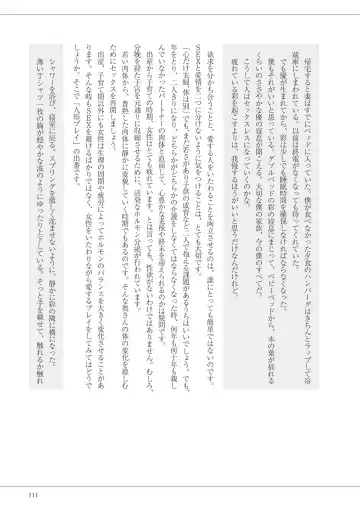 帰宅すると妻はすでにベッドに入っていた。僕が食べなかった夕食のハンバーグはきちんとラップして冷
蔵庫にしまわれている。以前は終電がなくなっても待ってくれていた。
でも優が生まれてから、彩は少しでも睡眠時間を確保しなければならなくなった。
僕もそれがいいと思っている。ダブルベッドの彩の寝息にまじって、ベビーベッドから、木の葉が揺れる
くらいのささやかな優の寝息が聞こえる。大切な僕の家族、今の僕のすべてだ。
こうして人はセックスレスになってしまうのだろうか。
疲れている彩を起こすよりは、我慢するほうがいいと思うだけなんだけれど。
欲求を分かち合うことと、愛する人をいたわることを両立させるのは、誰にとっても簡単ではないのです。
SEXと愛情を二つに分けないように気をつけることは、とても大切です。
「心だけ夫婦、体は別」でも、まだ若さがあり子供の成育など二人で抱える課題があるうちはいいでしょう。でも、
年をとり、二人きりになり、どちらかがどちらかの介護をしなくてはならなくなった時、何年も何十年も親し
んでいなかったパートナーの肉体と直面して、心豊かな老後や終末を迎えられるのかは疑問です。
出産から子育ての時期、女性はとても疲れています。とは言っても、性欲がないわけではありません。むしろ、
分娩を経た子宮を元通りに収縮させるために、活発なホルモン分泌が行われています。
若い肉体から、豊熟した肉体に静かに変貌していく時期でもあるのです。そんな奥さんの体の変化を慈しむ
ためにもセックスを再開しましょう。
出産、子育て期以外にも、女性は月の周期や疲労によってホルモンのバランスを大きく変化させることがあ
ります。そんな時もSEXを避けるばかりではなく、女性をいたわりながら愛するプレイをしてみてはどうで
しょうか。そこで「人形プレイ」の出番です。
シャワーを浴び、寝室に戻る。スプリングを激しく沈ませないように、静かに彩の隣に横になった。
薄いTシャツ一枚の胸が穏やかな波のようにゆったり上下している。そっと手を載せて、触れるか触れ
111